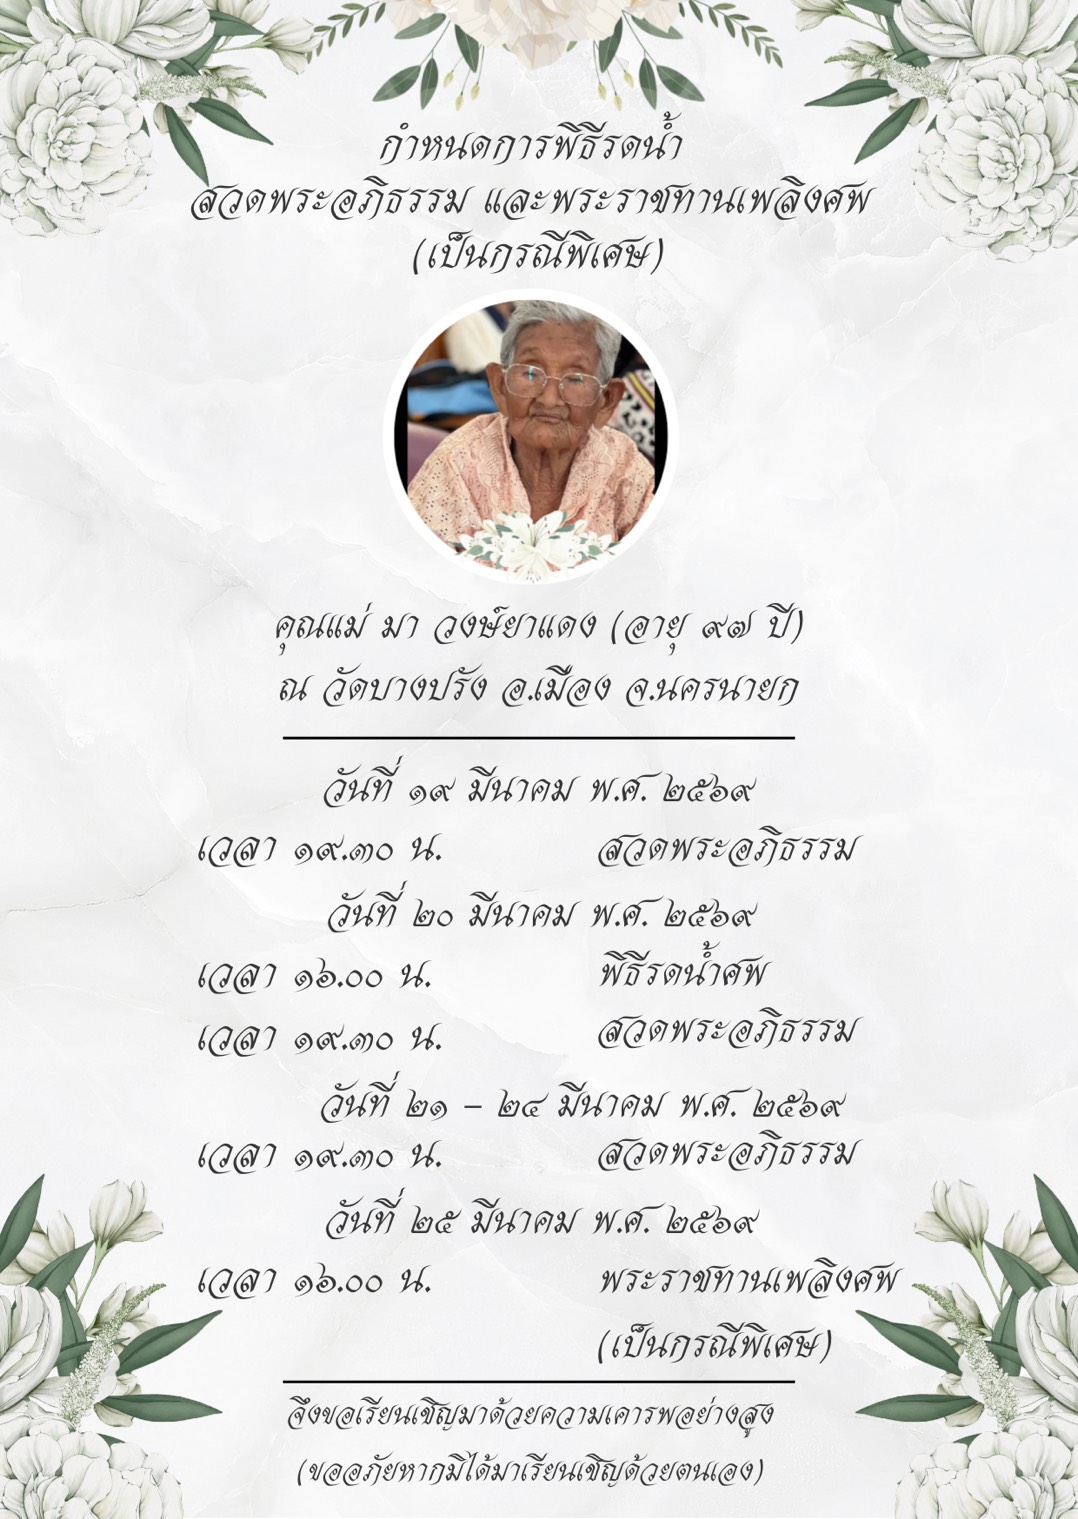 กำหนดการพิธีรดน้ำ
สวดพระอภิธรรม และพระราชทานเพลิงศพ
(เป็นกรณีพิเศษ)
คุณแม่ มา วงษ์ยาแดง (อายุ ๙๗ ปี)
ณ วัดบางปรัง อ.เมือง จ.นครนายก
วันที่ ๑๙ มีนาคม พ.ศ. ๒๕๖๙
เวลา ๑๙.๓๐ น. สวดพระอภิธรรม
วันที่ ๒๐ มีนาคม พ.ศ. ๒๕๖๙
เวลา ๑๖.๐๐ น. พิธีรดน้ำศพ
เวลา ๑๙.๓๐ น. สวดพระอภิธรรม
วันที่ ๒๑ – ๒๔ มีนาคม พ.ศ. ๒๕๖๙
เวลา ๑๙.๓๐ น. สวดพระอภิธรรม
วันที่ ๒๕ มีนาคม พ.ศ. ๒๕๖๙
เวลา ๑๖.๐๐ น. พระราชทานเพลิงศพ
(เป็นกรณีพิเศษ)
จึงขอเรียนเชิญมาด้วยความเคารพอย่างสูง
(ขออภัยหากมิได้มาเรียนเชิญด้วยตนเอง)